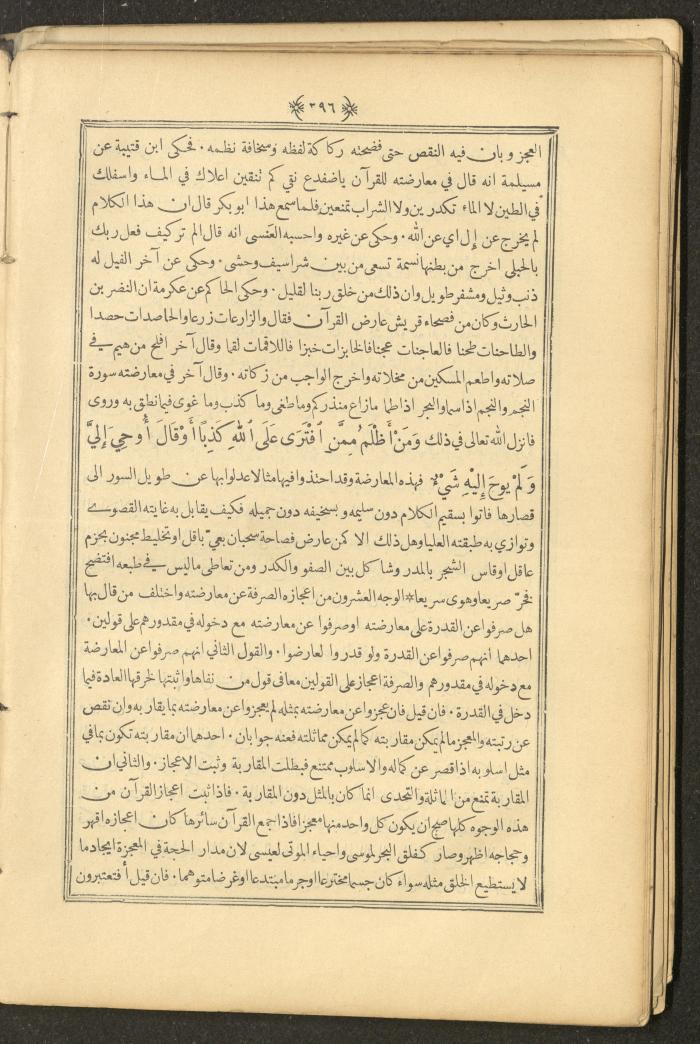 ٣٩٦
العجز وبان فيه النقص حتى فضحته ركاكة لفظه وسخافة نظمه ٠ فحكى ابن قتيبة عن
مسيلمة انه قال في معارضته للقرآن ياضفدع نقي كم تنقين اعلاك في الماء واسفلك
في الطين لا الماء تكدرين ولا الشراب تمنعين فلما سمع هذا ابو بكر قال ان هذا الكلام
لم يخرج عن إل اي عن الله ٠ وحكى عن غيره واحسبه العنسى انه قال الم تر كيف فعل ربك
بالحبلى اخرج من بطنها نسمة تسعى من بين شراسيف وحشى ٠ وحكى عن آخر الفيل له
ذنب وثيل ومشفر طويل وان ذلك من خلق ربنا لقليل ٠ وحكى الحاكم عن عكرمة ان النضر بن
الحارث وكان من فصحاء قريش عارض القرآن فقال والزارعات زرعا والحاصدات حصدا
والطاحنات طحنا فالعاجنات عجنا فالخابزات خبزا فاللاقمات لقما وقال آخر افلح من هيم في
صلاته واطعم المسكين من مخلاته واخرج الواجب من زكاته ٠ وقال آخر في معارضته سورة
النجم والنجم اذا سما والبحر اذا طما مازاغ منذركم وما طغى وما كذب وما غوى فيما نطق به وروى
فانزل الله تعالى في ذلك وَمَنْ أَظْلَمُ مِمَّنِ افْتَرَى عَلَى اللهِ كَذِبًا أَوْ قَالَ أُوحِيَ إِلَيَّ
وَلَمْ يُوحَ إِلَيْهِ شَيْءٌ فهذه المعارضة وقد احتذوا فيها مثالا عدلوا بها عن طويل السور الى
قصارها فاتوا بسقيم الكلام دون سليمه وبسخيفه دون جميله فكيف يقابل به غايته القصوى
وتوازي به طبقته العليا وهل ذلك الا كمن عارض فصاحة سحبان بعيّ باقل او تخليط مجنون بحزم
عاقل او قاس الشجر بالمدر وشاكل بين الصفو والكدر ومن تعاطى ماليس في طبعه افتضح
فخرّ صريعا وهوى سريعا * الوجه العشرون من اعجازه الصرفة عن معارضته واختلف من قال بها
هل صرفوا عن القدرة على معارضته او صرفوا عن معارضته مع دخوله في مقدورهم على قولين ٠
احدهما انهم صرفوا عن القدرة ولو قدروا لعارضوا ٠ والقول الثاني انهم صرفوا عن المعارضة
مع دخوله في مقدورهم والصرفة اعجاز على القولين معا في قول من نفاها واثبتها لخرقها العادة فيما
دخل في القدرة ٠ فان قيل فان عجزوا عن معارضته بمثله لم يعجزوا عن معارضته بما يقاربه وان نقص
عن رتبته والمعجز مالم يمكن مقاربته كما لم يمكن مماثلته فعنه جوابان ٠ احدهما ان مقاربته تكون بما في
مثل اسلوبه اذا قصر عن كماله والاسلوب ممتنع فبطلت المقاربة وثبت الاعجاز ٠ والثاني ان
المقاربة تمنع من المماثلة والتحدى انما كان بالمثل دون المقاربة ٠ فاذا ثبت اعجاز القرآن من
هذه الوجوه كلها صح ان يكون كل واحد منها معجزا فاذا جمع القرآن سائرها كان اعجازه اقهر
وحجاجه اظهر وصار كفلق البحر لموسى واحياء الموتى لعيسى لان مدار الحجة في المعجزة ايجاد ما
لا يستطيع الخلق مثله سواء كان جسما مخترعا او جرما مبتدعا او غرضا متوهما ٠ فان قيل أفتعتبرون